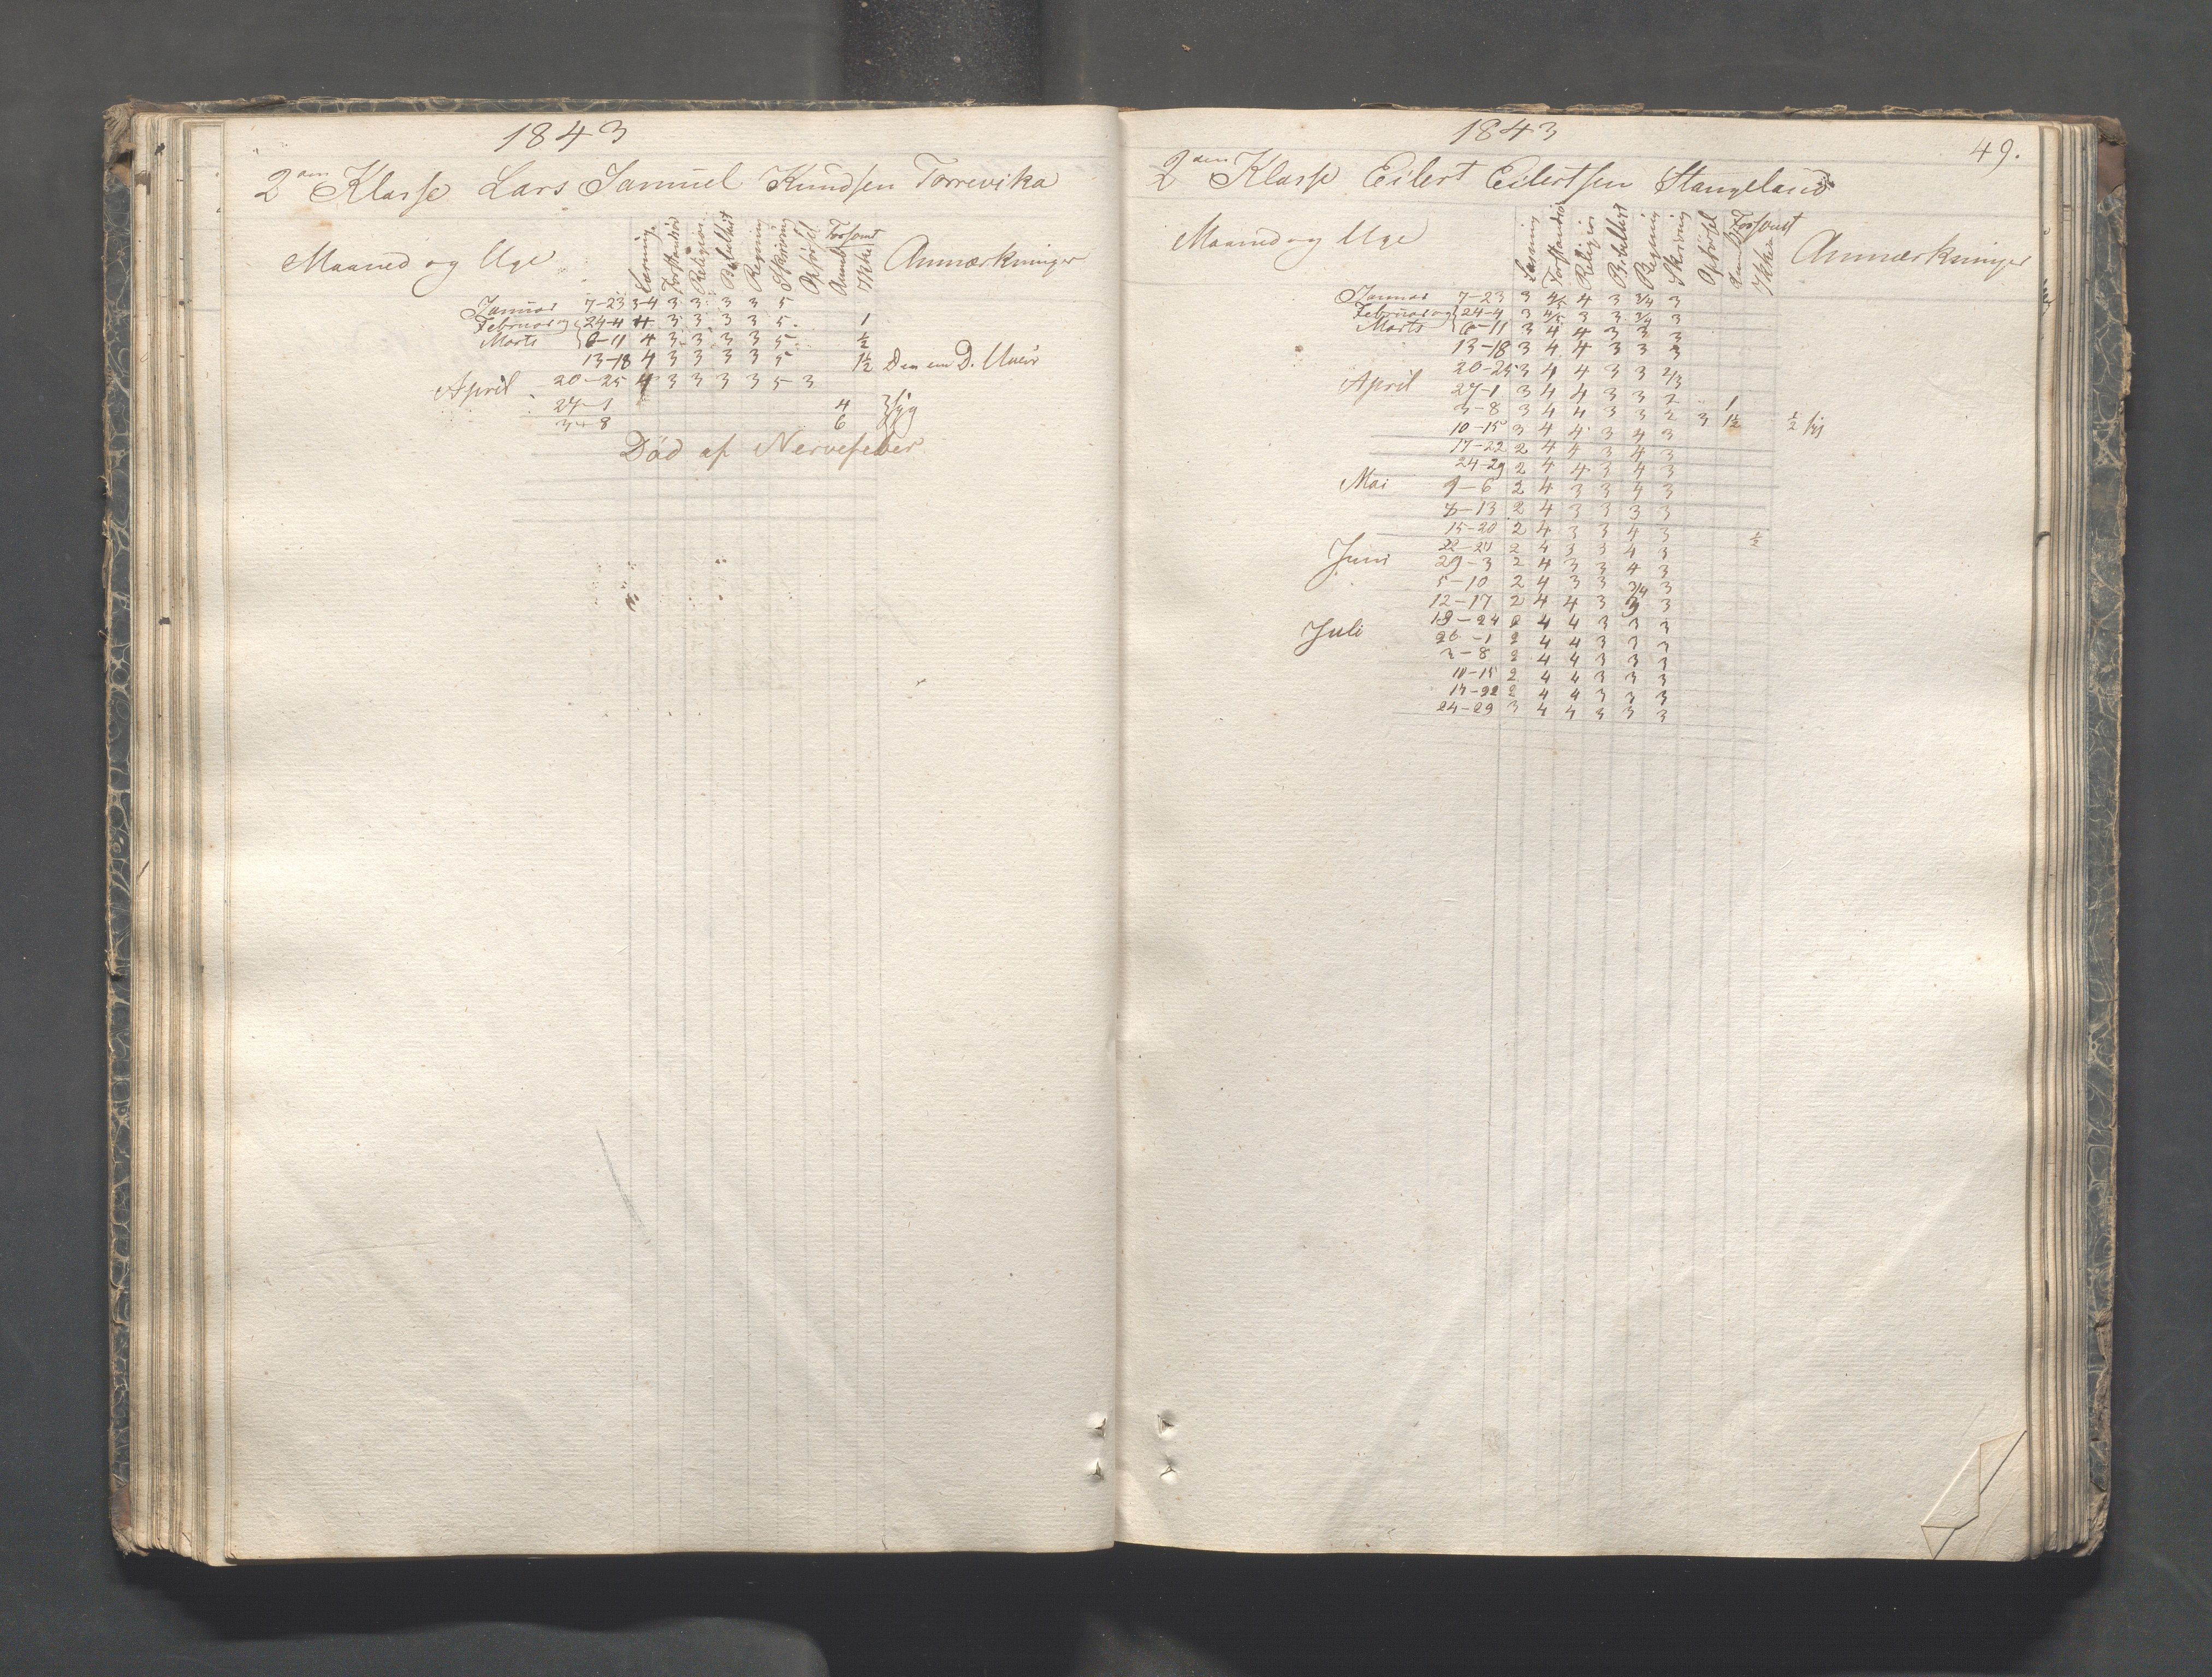 1843
2den Klasse Lars Samuel Knudsen Torrevika
Maaned og Uge Læsning Forstandsø Religion Bibelhist Regning Skrivning Opførsel Forsømt Anmærkninger
Januar 7-23 3-4 3 3 3 3 5
Februar og 24-4 4 3 3 3 3 5 1
Marts 6-11 4 3 3 3 3 5 1/2
13-18 4 3 3 3 3 5 1 1/2 Den ene D.
April 20-25 4 3 3 3 3 5 3
27-1 4 syg
3-8 6
Død af Nervefeber
1843
49.
2den Klasse Eilert Eilertsen Stangeland
Maaned og Uge Læsning Forstandsø Religion Bibelhist Regning Skrivning Opførsel Forsømt Ikke Anmærkninger
Januar 7-23 3 4/5 4 3 3/4 3
Februar og 24-4 3 4/5 3 3 3/4 3
Marts 6-11 3 4 4 3 3 3
13-18 3 4 4 3 3 3
20-25 3 4 4 3 3 2/3
April 27-1 3 4 4 3 3 2 1
3-8 3 4 4 3 3 2 3 1 1/2 1/2 syg
10-15 3 4 4 3 4 3
17-22 2 4 4 3 4 3
24-29 2 4 4 3 4 3
Mai 1-6 2 4 3 3 4 3
8-13 2 4 3 3 3 3
15-20 2 4 3 3 4 3 1/2
22-27 2 4 3 3 4 3
Juni 29-3 2 4 3 3 4 3
5-10 2 4 3 3 3/4 3
12-17 2 4 4 3 3 3
19-24 2 4 4 3 3 3
Juli 26-1 2 4 4 3 3 3
3-8 2 4 4 3 3 3
10-15 2 4 4 3 3 3
17-22 2 4 4 3 3 3
24-29 3 4 4 3 3 3